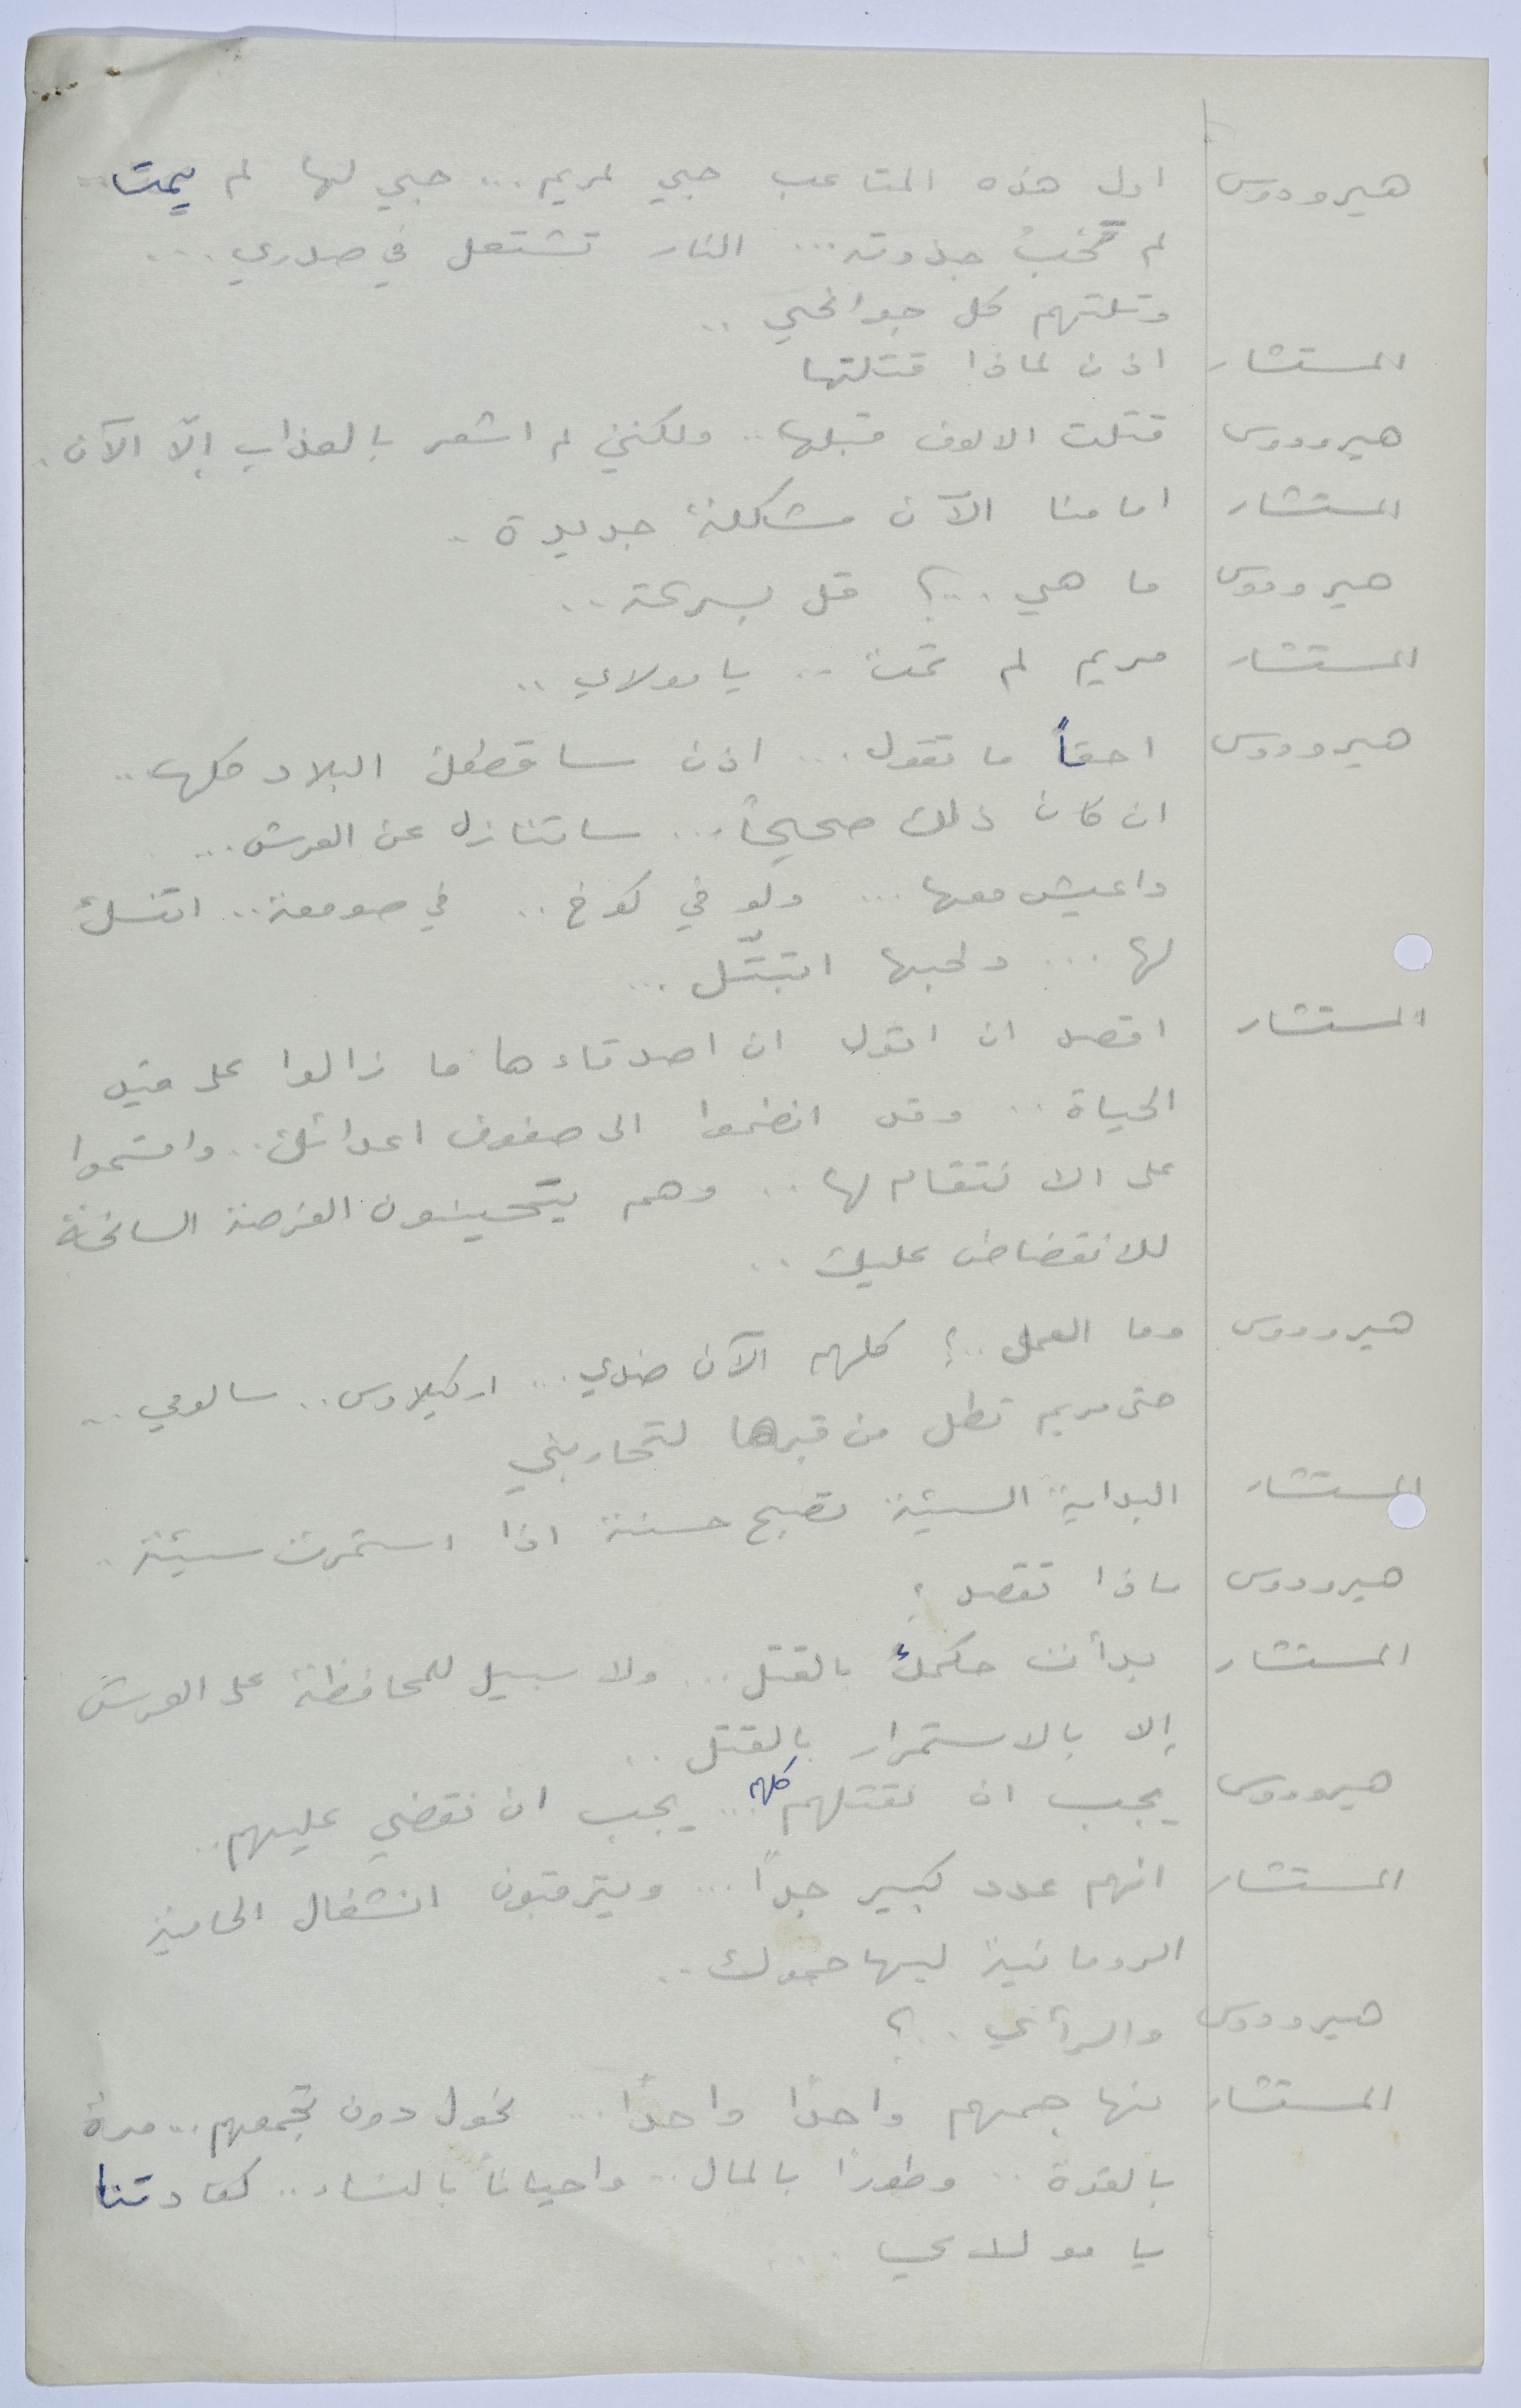 هيرودوس اول هذه المتاعب حبي لمريم ... حبي لها لم يمت ..
لم تخبُ جذوته ... النار تشتعل في صدري ...
وتلتهم كل جوانحي ..
المستشار اذن لماذا قتلتها
هيرودوس قتلت الالوف قبلها .. ولكنني لم اشعر بالعذاب إلّا الآن .
المستشار امامنا الآن مشكلة جديدة .
هيرودوس ما هي ...؟ قل بسرعة ..
المستشار مريم لم تمت .. يا مولاي ..
هيرودوس احقاً ما تقول ... اذن البلاد كلها ..
ان كان ذلك صحيحاً ... ساتنازل عن العرش ...
واعيش معها ... ولو في كوخ .. في صومعة .. اتنسك
لها ... ولحبها اتبتّل ...
المستشار اقصد ان اقول ان اصدقاءها ما زالوا على قيد
الحياة .. وقد انضموا الى صفوف اعدائك .. واقسموا
على الانتقام لها .. وهم يتحينون الفرصة السانحة
للانقضاض عليك ..
هيرودوس وما العمل ..؟ كلهم الآن ضدي ... اركيلاوس .. سالومي ..
حتى مريم تطل من قبرها لتحاربني
المستشار البداية السيئة تصبح حسنة اذا استمرت سيئة .
هيرودوس ماذا تقصد ؟
المستشار بدأت حكمك بالقتل ... ولا سبيل للمحافظة على العرش
إلا بالاستمرار بالقتل ..
هيرودوس يجب ان نقتلهم كلهم ... يجب ان نقضي عليهم ..
المستشار انهم عدد كبير جداً ... ويترقبون انشغال الحامية
الرومانية ليهاجموك ..
هيرودوس والرأي ..؟
المستشار نهاجمهم واحدًا واحدًا ... نحول دون تجمعهم .. مرة
بالقوة .. وطورًا بالمال .. واحيانًا بالنساء .. كعادتنا
يا مولاي ...